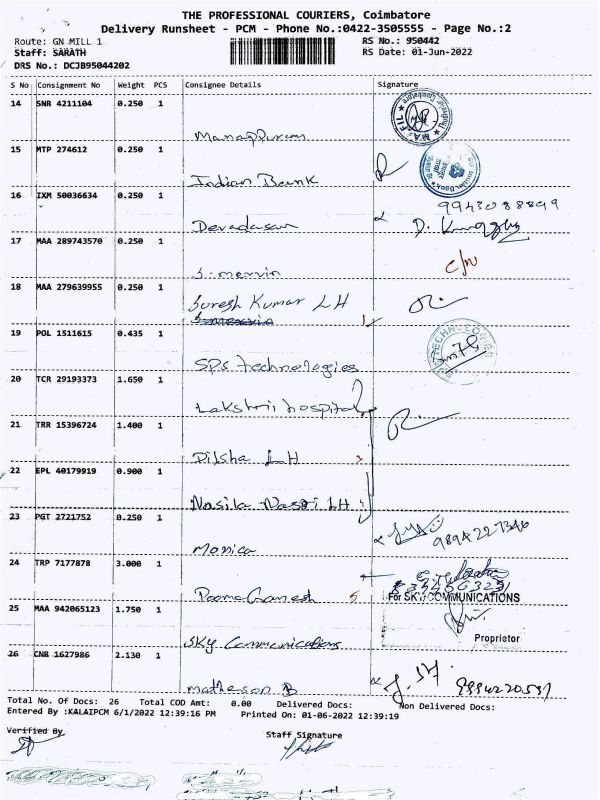 THE PROFESSIONAL COURIERS, Coimbatore
Delivery Runsheet - PCM - Phone No.:0422-3505555 - Page No.:2
Route: GN MILL 1 RS No.: 950442
Staff: SARATH RS Date: 01-Jun-2022
DRS No.: DCJB95044202
S No Consignment No Weight PCS Consignee Details Signature
14 SNR 4211104 0.250 1
Manappuram
15 MTP 274612 0.250 1
Indian Bank
16 IXM 50036634 0.250 1 9943088899
Devadasan
17 MAA 289743570 0.250 1
S. mervin c/n
18 MAA 279639955 0.250 1
Suresh Kumar LH
S. mervin
19 POL 1511615 0.435 1
SPS technologies
20 TCR 29193373 1.650 1
Lakshmi hospital
21 TRR 15396724 1.400 1
Dilsha LH
22 EPL 40179919 0.900 1
Nasila Nasri LH
23 PGT 2721752 0.250 1
Monica
24 TRP 7177878 3.000 1
Poorna Ganesh 5
For SKY COMMUNICATIONS
25 MAA 942065123 1.750 1
Proprietor
SKY Communications
26 CNR 1627986 2.130 1
matheson B
Total No. Of Docs: 26 Total COD Amt: 0.00 Delivered Docs: Non Delivered Docs:
Entered By :KALAIPCM 6/1/2022 12:39:16 PM Printed On: 01-06-2022 12:39:19
Verified By Staff Signature